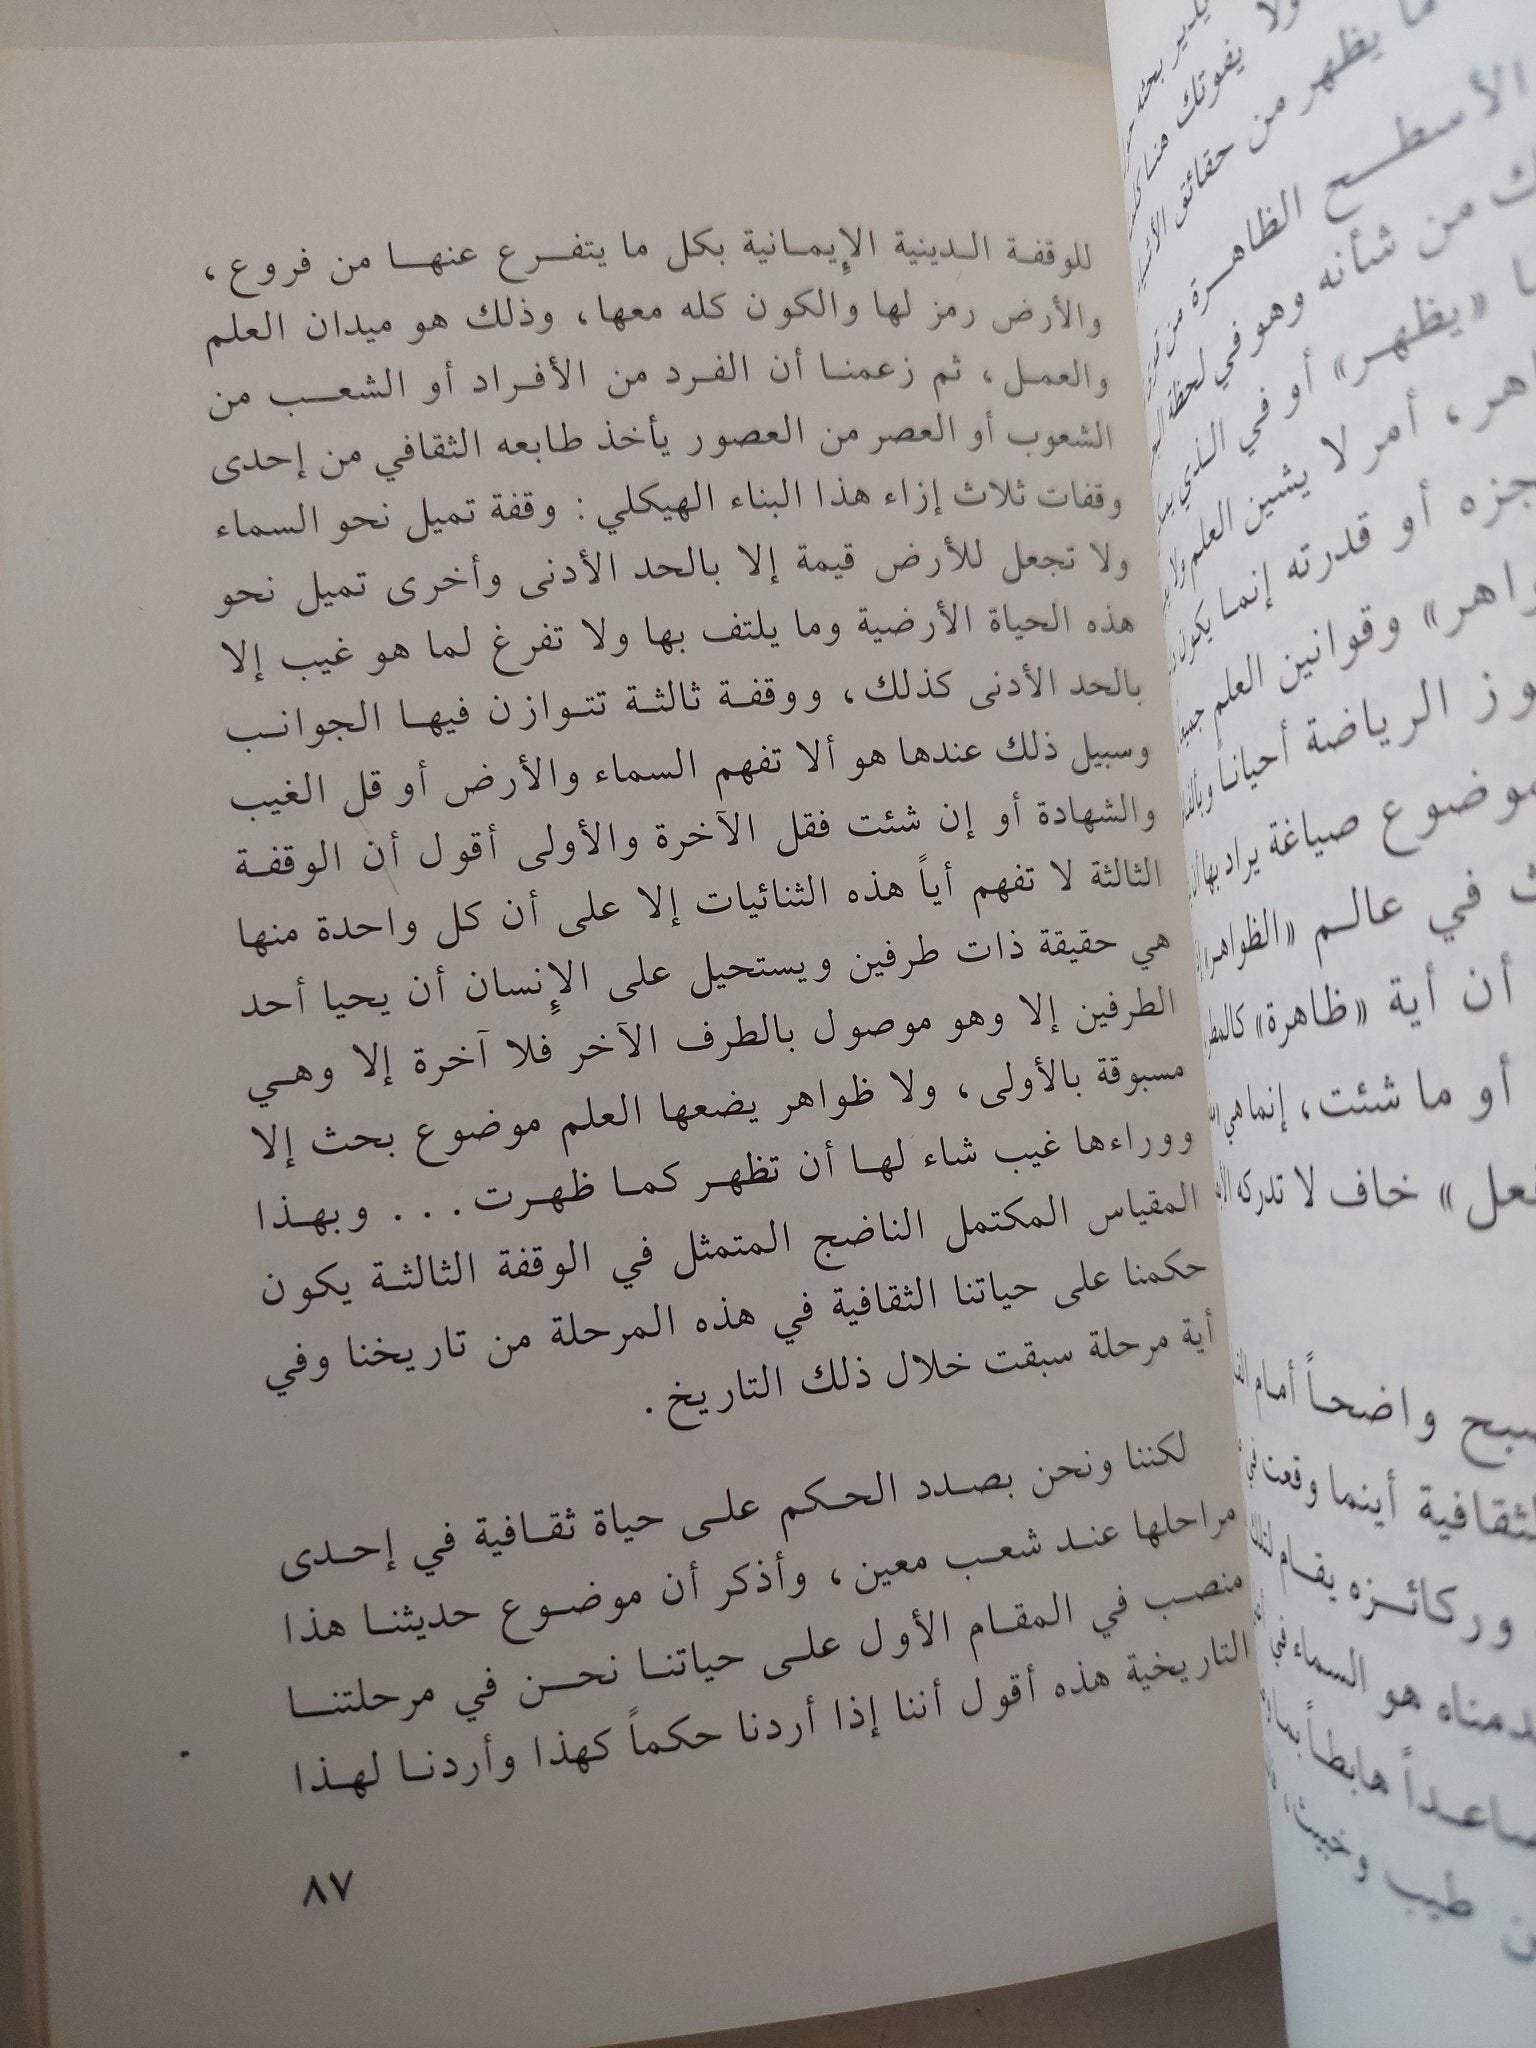 للوقفة الدينية الإيمانية بكل ما يتفرع عنها من فروع،
والأرض رمز لها والكون كله معها، وذلك هو ميدان العلم
والعمل، ثم زعمنا أن الفرد من الأفراد أو الشعب من
الشعوب أو العصر من العصور يأخذ طابعه الثقافي من إحدى
وقفات ثلاث إزاء هذا البناء الهيكلي: وقفة تميل نحو السماء
ولا تجعل للأرض قيمة إلا بالحد الأدنى وأخرى تميل نحو
هذه الحياة الأرضية وما يلتف بها ولا تفرغ لما هو غيب إلا
بالحد الأدنى كذلك، ووقفة ثالثة تتوازن فيها الجوانب
وسبيل ذلك عندها هو ألا تفهم السماء والأرض أو قل الغيب
والشهادة أو إن شئت فقل الآخرة والأولى أقول أن الوقفة
الثالثة لا تفهم أياً هذه الثنائيات إلا على أن كل واحدة منها
هي حقيقة ذات طرفين ويستحيل على الإنسان أن يحيا أحد
الطرفين إلا وهو موصول بالطرف الآخر فلا آخرة إلا وهي
مسبوقة بالأولى، ولا ظواهر يضعها العلم موضوع بحث إلا
ووراءها غيب شاء لها أن تظهر كما ظهرت... وبهذا
المقياس المكتمل الناضج المتمثل في الوقفة الثالثة يكون
حكمنا على حياتنا الثقافية في هذه المرحلة من تاريخنا وفي
أية مرحلة سبقت خلال ذلك التاريخ.
لكننا ونحن بصدد الحكم على حياة ثقافية في إحدى
مراحلها عند شعب معين، وأذكر أن موضوع حديثنا هذا
منصب في المقام الأول على حياتنا نحن في مرحلتنا
التاريخية هذه أقول أننا إذا أردنا حكماً كهذا وأردنا لهذا
٨٧
ولا يفوتك هنا
يظهر من حقائق
الأسطح الظاهرة من
من شأنه وهو في لحظة
«يظهر» أو في الذي
أمر لا يشين العلم ولا
أو قدرته إنما يكون
وقوانين العلم
الرياضة أحياناً
صياغة يراد بها
في عالم «الظواهر»
أن أية «ظاهرة» كالمطر
أو ما شئت، إنما هي
خاف لا تدركه
واضحاً أمام
أينما وقعت في
وركائزه يقام
هو السماء في
هابطاً
طيب وخبيث